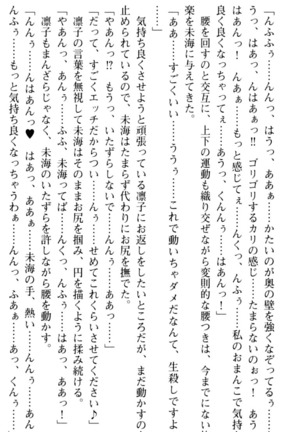 「んふふぅ……んっ、あぁぁ……かたいのが奥の壁を強くなぞってるぅ……
うっ、はあっ、んはぁぁっ!! ゴリゴリするカリの感じ……たまらないのぉっ! あう
はあんっ! んぁぁ……もっと感じてぇ……んくっ、んふぅ……私のおまんこで気持
良くなっちゃってぇ……あうっ、くんんぅ……はあんっ!」
　腰を回すのと交互に、上下の運動も織り交ぜながら変則的な腰つきは、今までにない
楽を未海に与えてきた。
「ああ……すごくいい……ううぅ……これで動いちゃダメだなんて、生殺しですよ
」
　気持ち良くさせようと頑張っている凛子にお返しをしたいところだが、まだ動かすの
止められているので、未海はたまらず代わりにお尻を撫でた。
「やあんっ!? もうっ、いたずらしないで……んんぅっ、ああっ……」
「だって、すごくエッチだからつい……んぅ……せめてこれくらいさせてください♪」
　凛子の言葉を無視して未海はそのままお尻を掴み、円を描くように揉み続ける。
「やぁんっ、あんぅ……ふふ、未海ってば……んくぅ、んふぅ……はあっ、ああっ!」
　凛子もまんざらじゃなく、未海のいたずらを許しながら腰を動かす。
「んんぅ……んはあんっ♥ はあっ、ああぁ……未海の手、熱い……んんぅ……あん
んふぅっ! もっと気持ち良くなっちゃうわぁ……んんっ、ふあぁ……あっ、くんぅ…